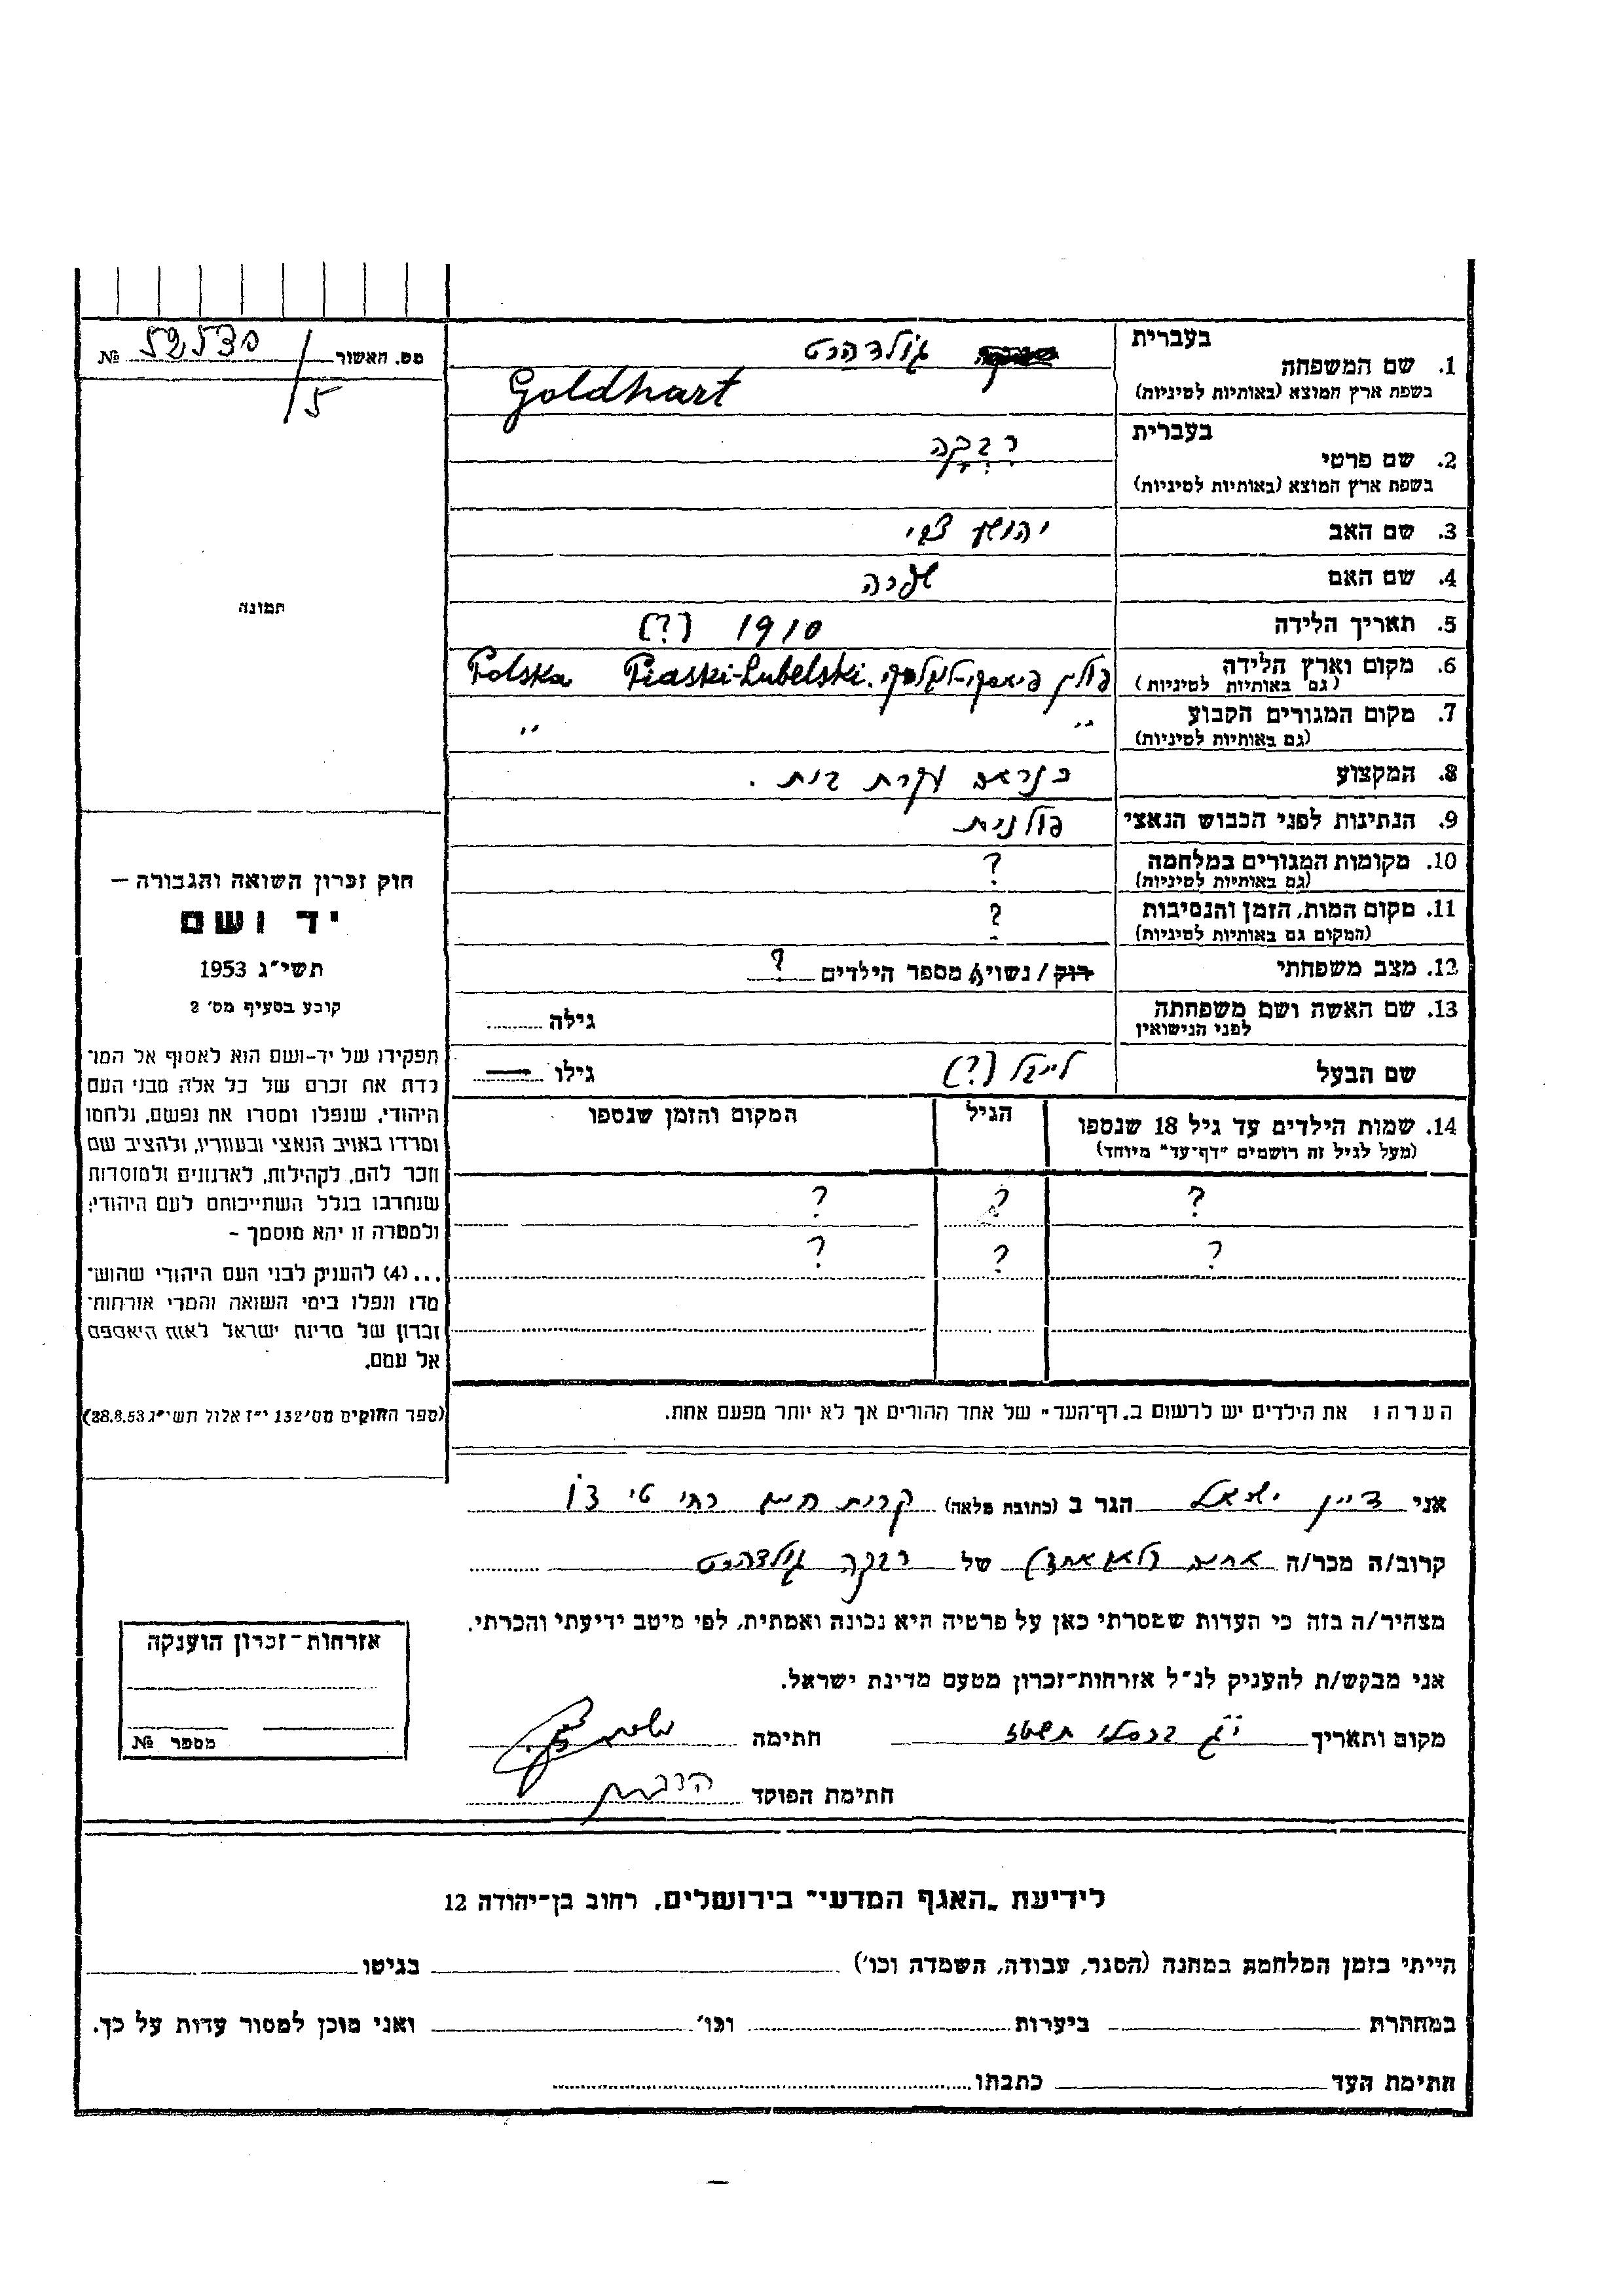 בעברית
1. שם המשפחה
בשפת ארץ המוצא (באותיות לטיניות)
גולדהרט
Goldhart
בעברית
2. שם פרטי
בשפת ארץ המוצא (באותיות לטיניות)
רבקה
3. שם האב יהושע צבי
4. שם האם שפרה
5. תאריך הלידה 1910 (?)
6. מקום וארץ הלידה
(גם באותיות לטיניות)
פולין פיאסקי-לובלסקי. Piaski-Lubelski Polska
7. מקום המגורים הקבוע
(גם באותיות לטיניות)
" "
8. המקצוע כנראה עקרת בית.
9. הנתינות לפני הכבוש הנאצי פולנית
10. מקומות המגורים במלחמה ?
(גם באותיות לטיניות)
11. מקום המות, הזמן והנסיבות ?
(המקום גם באותיות לטיניות)
12. מצב משפחתי רוק / נשוי/אה מספר הילדים ?
13. שם האשה ושם משפחתה
לפני הנישואין
גילה
שם הבעל לייבל (?) גילו —
14. שמות הילדים עד גיל 18 שנספו
(מעל לגיל זה רושמים "דף-עד" מיוחד)
הגיל
המקום והזמן שנספו
? ? ?
? ? ?
הערה: את הילדים יש לרשום ב"דף-העד" של אחד ההורים אך לא יותר מפעם אחת.
מס. האשור №
5
תמונה
חוק זכרון השואה והגבורה –
יד ושם
תשי"ג 1953
קובע בסעיף מס' 2
תפקידו של יד-ושם הוא לאסוף אל המו־
לדת את זכרם של כל אלה מבני העם
היהודי, שנפלו ומסרו את נפשם, נלחמו
ומרדו באויב הנאצי ובעוזריו, ולהציב שם
וזכר להם, לקהילות, לארגונים ולמוסדות
שנחרבו בגלל השתייכותם לעם היהודי;
ולמטרה זו יהא מוסמך –
... (4) להעניק לבני העם היהודי שהוש־
מדו ונפלו בימי השואה והמרי אזרחות־
זכרון של מדינת ישראל לאות היאספם
אל עמם.
(ספר החוקים מס' 132 י"ז אלול תשי"ג 28.8.53)
אני דיין ישראל הגר ב (כתובת מלאה) קרית חיים רח'
קרוב/ה מכר/ה של רבקה גולדהרט
מצהיר/ה בזה כי העדות שמסרתי כאן על פרטיה היא נכונה ואמתית, לפי מיטב ידיעתי והכרתי.
אני מבקש/ת להעניק לנ"ל אזרחות־זכרון מטעם מדינת ישראל.
מקום ותאריך י"ג בכסלו תשטז חתימה
חתימת הפוקד
אזרחות־זכרון הוענקה
מספר №
לידיעת "האגף המדעי" בירושלים, רחוב בן־יהודה 12
הייתי בזמן המלחמה במחנה (הסגר, עבודה, השמדה וכו') בגיטו
במחתרת ביערות וכו' ואני מוכן למסור עדות על כך.
חתימת העד כתבתו